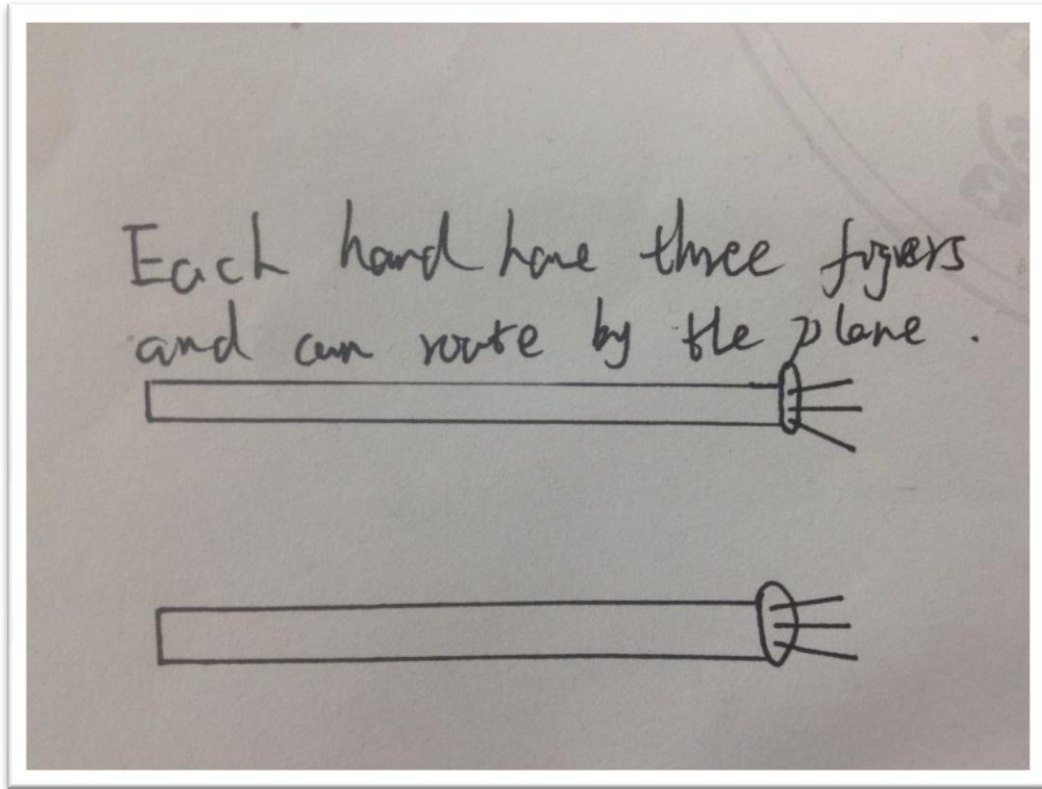 Each hand have three figers
and can route by the plane.